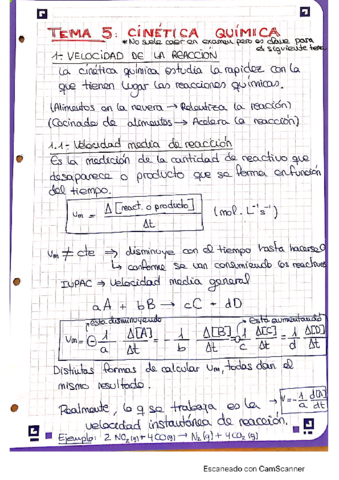 TEMA 5: CINÉTICA QUÍMICA
*No suele caer en examen pero es clave para el siguiente tema
1. VELOCIDAD DE LA REACCIÓN
La cinética química estudia la rapidez con la
que tienen lugar las reacciones químicas.
(Alimentos en la nevera → Ralentiza la reacción)
(Cocinado de alimentos → Acelera la reacción)
1.1- Velocidad media de reacción
Es la medición de la cantidad de reactivo que
desaparece o producto que se forma en función
del tiempo.
Vm = Δ[react. o producto] / Δt (mol·L⁻¹s⁻¹)
Vm ≠ cte ⇒ disminuye con el tiempo hasta hacerse 0
↳ conforme se van consumiendo los reactivos
IUPAC → Velocidad media general
aA + bB → cC + dD
está disminuyendo está aumentando
Vm = - 1/a Δ[A]/Δt = - 1/b Δ[B]/Δt = 1/c Δ[C]/Δt = 1/d Δ[D]/Δt
Distintas formas de calcular Vm, todas dan el
mismo resultado.
Realmente, lo q se trabaja es la
velocidad instantánea de reacción.
V = - 1/a d[A]/dt
Ejemplo: 2 NO₂(g) + 4CO(g) → N₂(g) + 4CO₂(g)
Escaneado con CamScanner